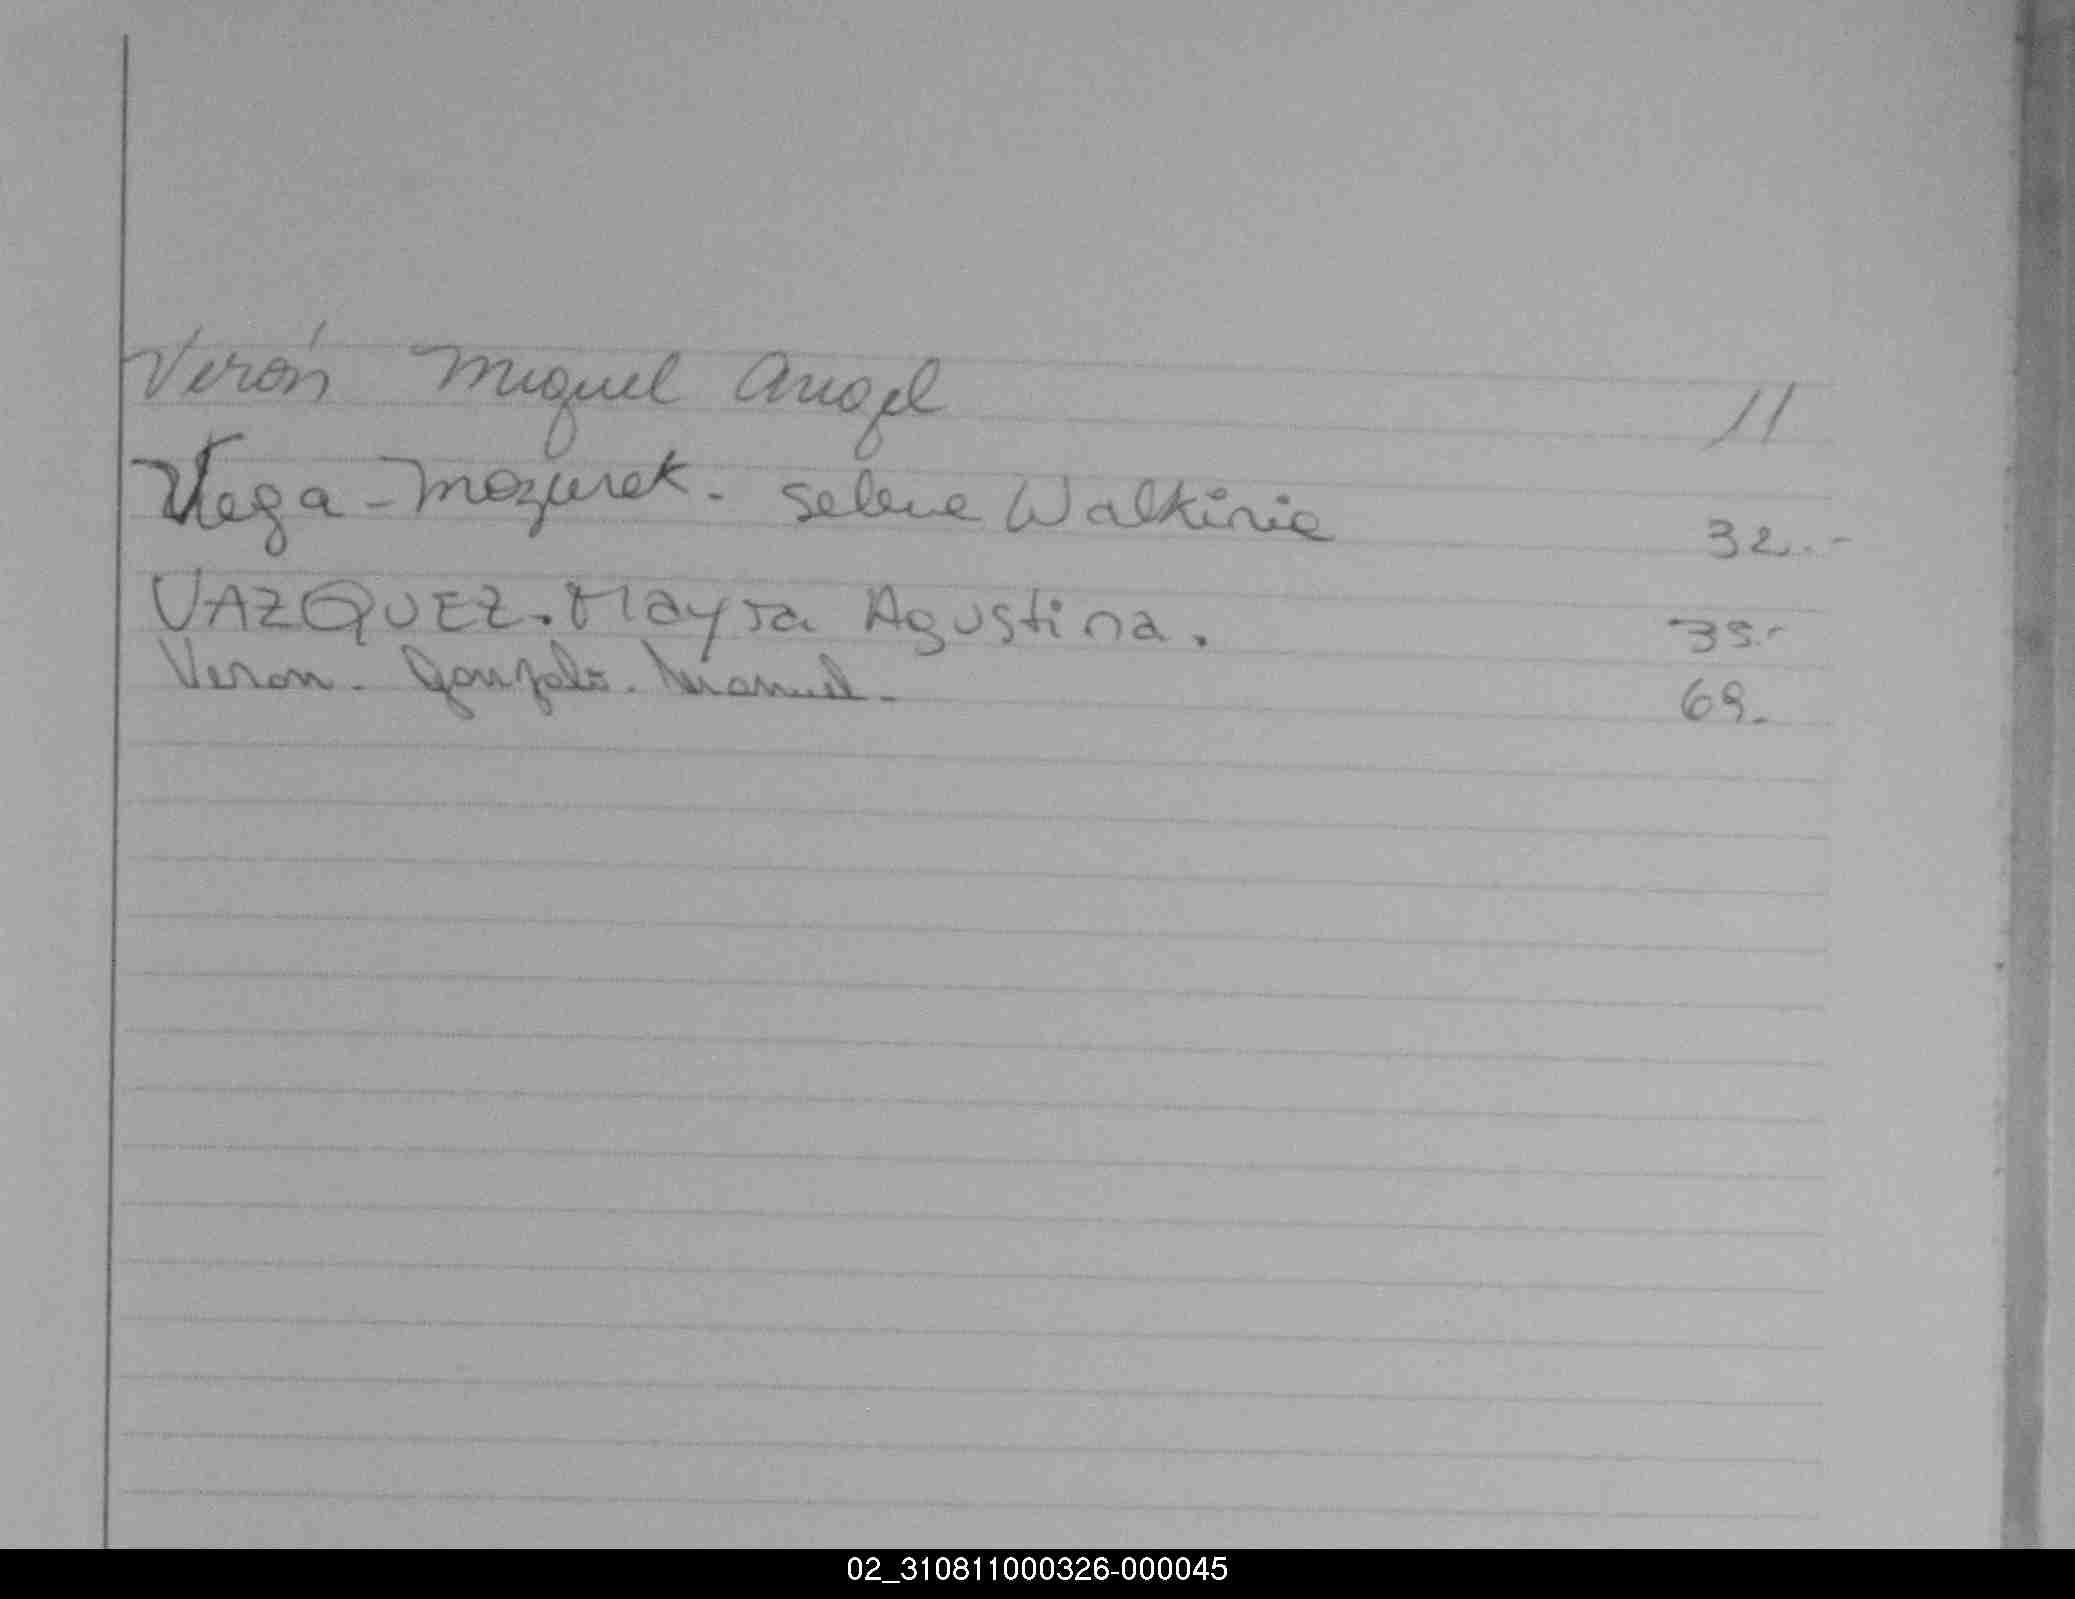 Verón Miguel Angel 11
Vega - Mazurek - Selene Walkirie 32.-
VAZQUEZ. Mayra Agustina. 35.-
Veron. Gonzalo. Manuel. 69.
02_310811000326-000045